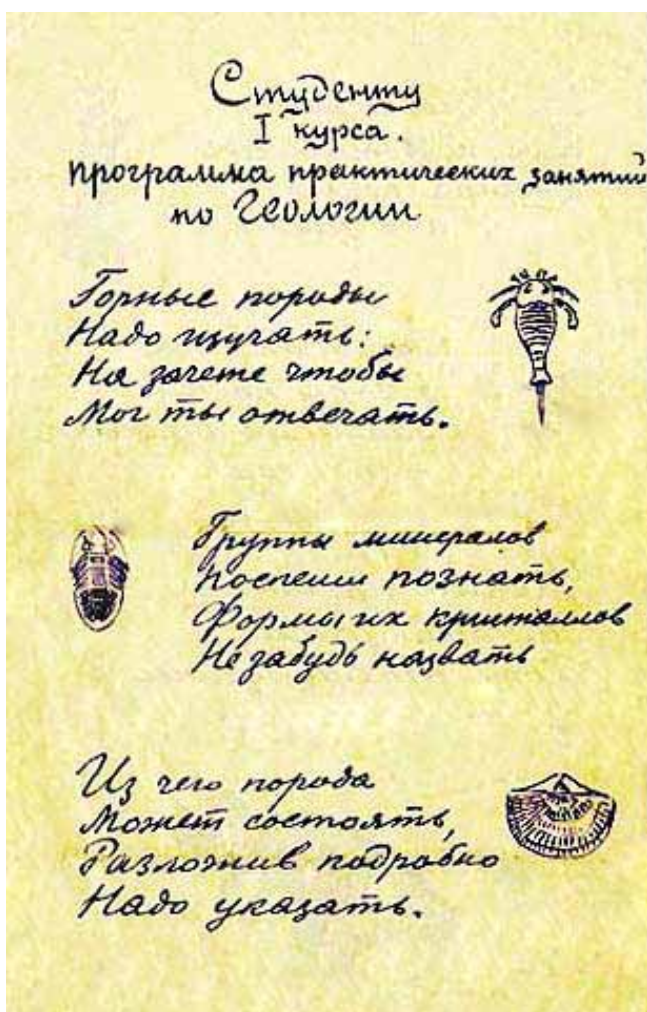 Студенту
I курса.
программа практических занятий
по Геологии
Горные породы
Надо изучать:
На зачете чтобы
Мог ты отвечать.
Группы минералов
Поспеши познать,
Формы их кристаллов
Не забудь назвать
Из чего порода
Может состоять,
Разложив подробно
Надо указать.